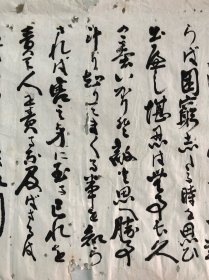 らば困窮したる時を思ひ
出すべし堪忍は無事長久
の基いかりは敵と思へ勝事
斗り知てまくる事を知ら
ざれば害其身に至る己れを
責て人を責るな及ばざるは